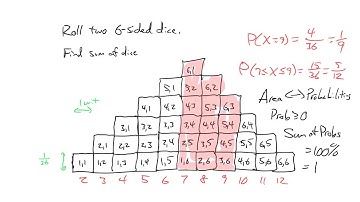 Roll two 6-sided dice.
Find sum of dice
P(X=9) = 4/36 = 1/9
P(7≤X≤9) = 15/36 = 5/12
Area ↔ Probabilities
Prob ≥ 0
Sum of Probs
= 100%
= 1
1 unit
1/36
6,1
5,1 5,2 6,2
4,1 4,2 4,3 5,3 6,3
3,1 3,2 3,3 3,4 4,4 5,4 6,4
2,1 2,2 2,3 2,4 2,5 3,5 4,5 5,5 6,5
1,1 1,2 1,3 1,4 1,5 1,6 2,6 3,6 4,6 5,6 6,6
2 3 4 5 6 7 8 9 10 11 12